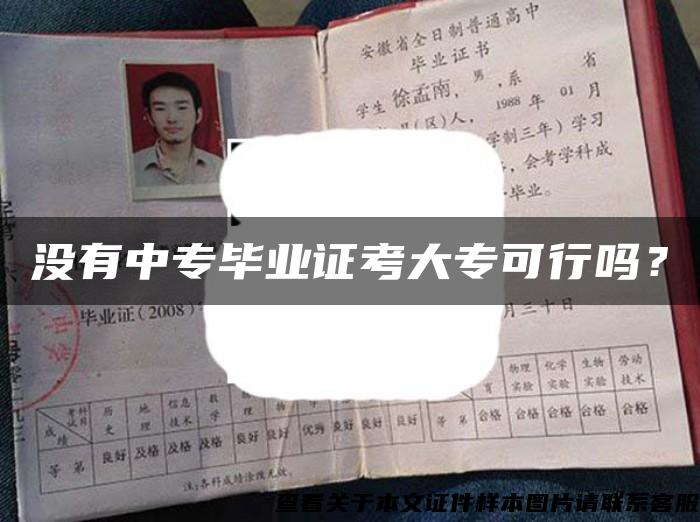 安徽省全日制普通高中
毕业证书
学生徐孟南，男，系 省
(区)人，1988年01月
学制三年）学习
会考学科成
毕业。
没有中专毕业证考大专可行吗？
毕业证(2008)字
月三十日
考试科目 历史 地理 信息技术 数学 物理
成绩
等第 良好 及格 及格 及格 良好 良好 优秀 良好 良好 良好
物理实验 化学实验 生物实验 劳动技术
等第 合格 合格 合格 合格 合格
注:各科成绩涂改无效。
查看关于本文证件样本图片请联系客服